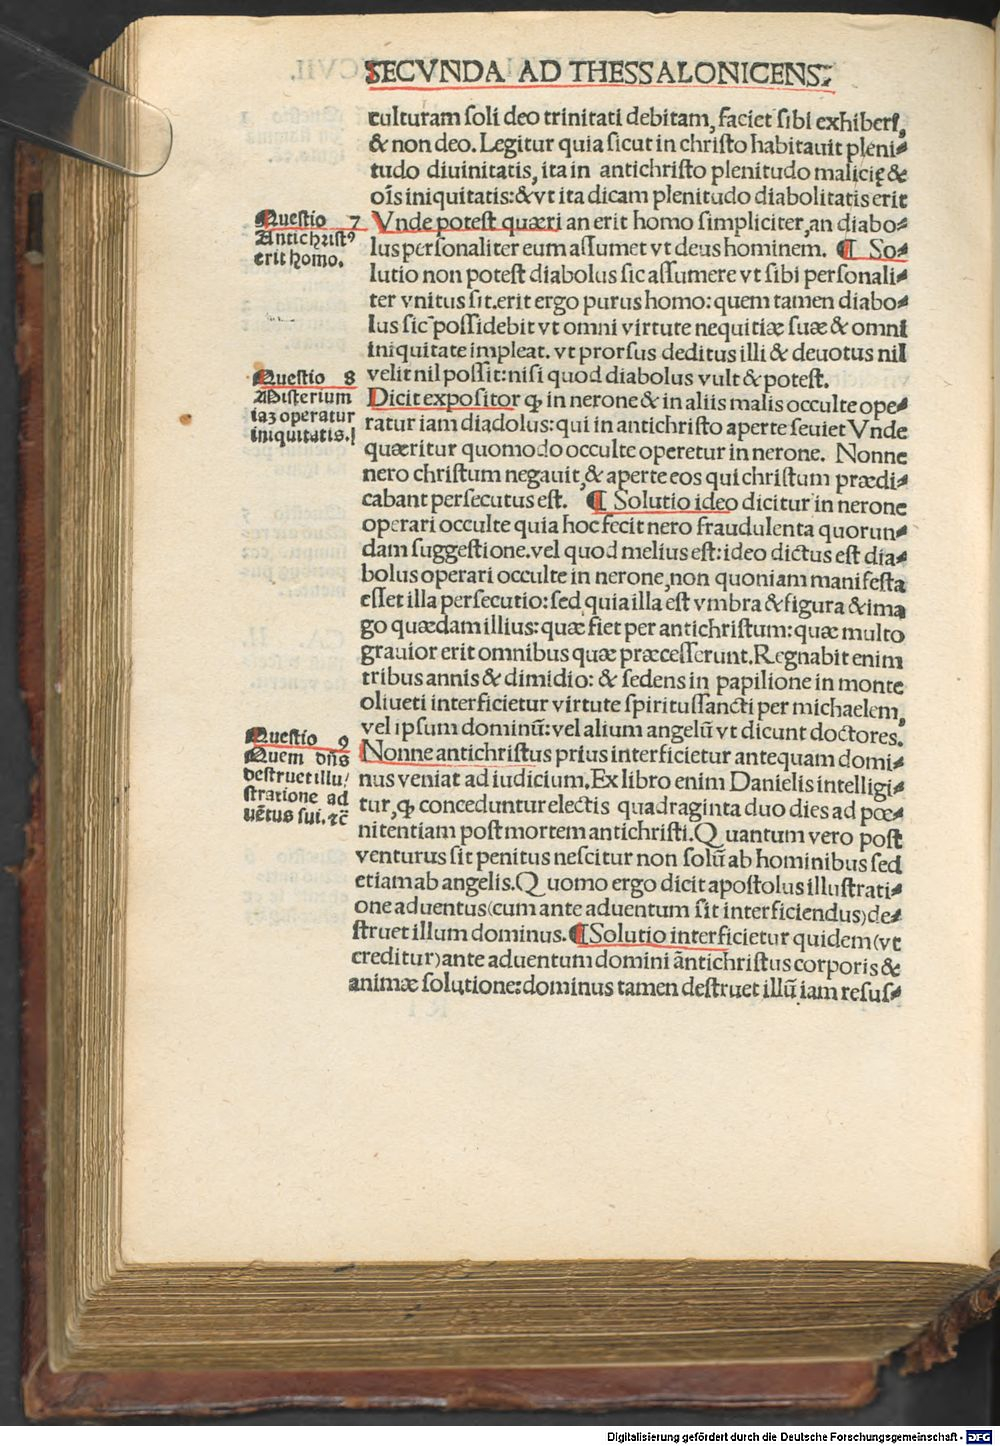 SECVNDA AD THESSALONICENS:
culturam soli deo trinitati debitam, faciet sibi exhiberi,
& non deo. Legitur quia sicut in christo habitauit pleni⸗
tudo diuinitatis, ita in antichristo plenitudo malicię &
oi̅s iniquitatis: & vt ita dicam plenitudo diabolitatis erit
Questio 7
Antichristꝰ
erit homo.
Vnde potest quæri an erit homo simpliciter, an diabo⸗
lus personaliter eum assumet vt deus hominem. ¶ So⸗
lutio non potest diabolus sic assumere vt sibi personali⸗
ter vnitus sit. erit ergo purus homo: quem tamen diabo⸗
lus sic possidebit vt omni virtute nequitiæ suæ & omni
iniquitate impleat. vt prorsus deditus illi & deuotus nil
velit nil possit: nisi quod diabolus vult & potest.
Questio 8
Misterium
iaꝫ operatur
iniquitatis.
Dicit expositor ꝙ in nerone & in aliis malis occulte ope⸗
ratur iam diadolus: qui in antichristo aperte seuiet Vnde
quæritur quomodo occulte operetur in nerone. Nonne
nero christum negauit, & aperte eos qui christum prædi⸗
cabant persecutus est. ¶ Solutio ideo dicitur in nerone
operari occulte quia hoc fecit nero fraudulenta quorun⸗
dam suggestione. vel quod melius est: ideo dictus est dia⸗
bolus operari occulte in nerone, non quoniam manifesta
esset illa persecutio: sed quia illa est vmbra & figura & ima
go quædam illius: quæ fiet per antichristum: quæ multo
grauior erit omnibus quæ præcesserunt. Regnabit enim
tribus annis & dimidio: & sedens in papilione in monte
oliueti interficietur virtute spiritussancti per michaelem,
vel ipsum dominū: vel alium angelū vt dicunt doctores.
Questio 9
Quem dn̅s
destruet illu/
stratione ad
uētus sui. ⁊c̄
Nonne antichristus prius interficietur antequam domi⸗
nus veniat ad iudicium. Ex libro enim Danielis intelligi⸗
tur, ꝙ conceduntur electis quadraginta duo dies ad pœ⸗
nitentiam post mortem antichristi. Quantum vero post
venturus sit penitus nescitur non solū ab hominibus sed
etiam ab angelis. Quomo ergo dicit apostolus illustrati⸗
one aduentus (cum ante aduentum sit interficiendus) de⸗
struet illum dominus. ¶ Solutio interficietur quidem (vt
creditur) ante aduentum domini āntichristus corporis &
animæ solutione: dominus tamen destruet illū iam resus⸗
Digitalisierung gefördert durch die Deutsche Forschungsgemeinschaft - DFG